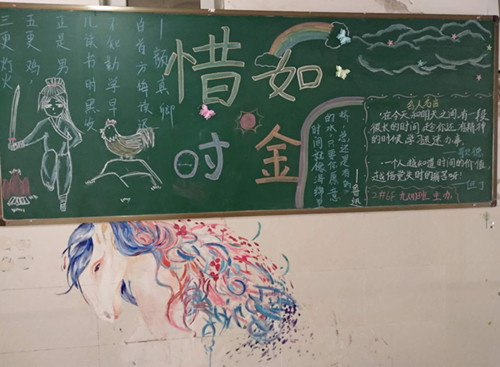 三更灯火
五更鸡
正是男
儿读书时黑发
不知勤学早
白首方悔读
—颜真卿
惜时
如金
时间就像海绵里
的水,只要你愿意
挤,总还是有的
—鲁迅
名人名言
"在今天和明天之间,有一段
很长的时间;趁你还有精神
的时候,学习迅速办事
歌德
一个人越知道时间的价值,
越倍觉失时的痛苦呀!
但丁
班 主办